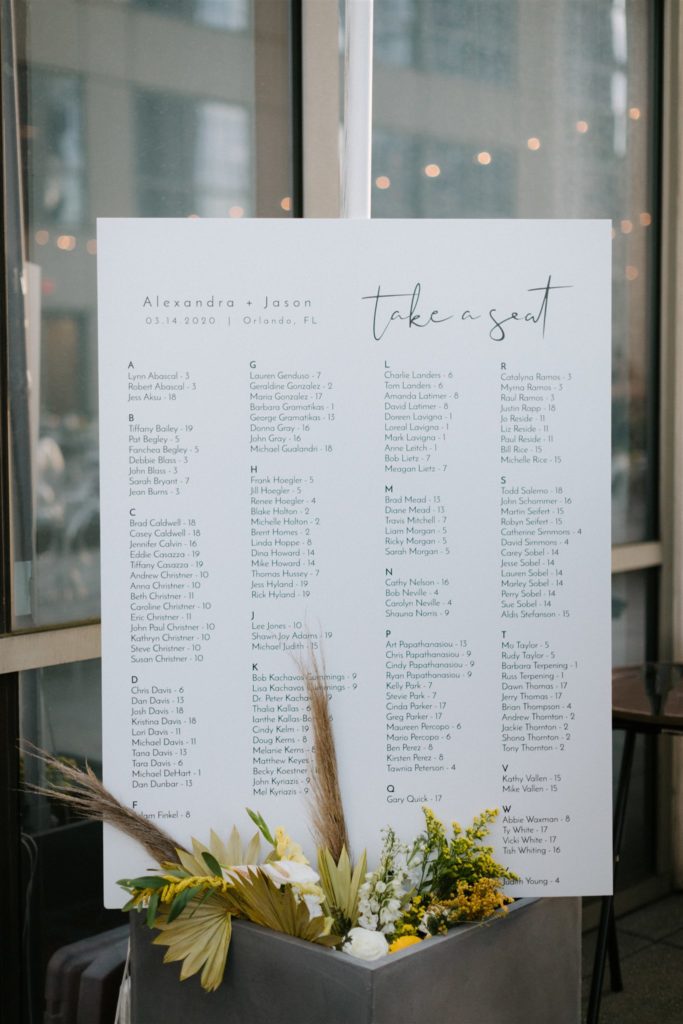 Alexandra + Jason
03.14.2020 | Orlando, FL
take a seat
A
Lynn Abascal - 3
Robert Abascal - 3
Jess Aksu - 18
B
Tiffany Bailey - 19
Pat Begley - 5
Fanchea Begley - 5
Debbie Blass - 3
John Blass - 3
Sarah Bryant - 7
Jean Burns - 3
C
Brad Caldwell - 18
Casey Caldwell - 18
Jennifer Calvin - 16
Eddie Casazza - 19
Tiffany Casazza - 19
Andrew Christner - 10
Anna Christner - 10
Beth Christner - 11
Caroline Christner - 10
Eric Christner - 11
John Paul Christner - 10
Kathryn Christner - 10
Steve Christner - 10
Susan Christner - 10
D
Chris Davis - 6
Dan Davis - 13
Josh Davis - 18
Kristina Davis - 18
Lori Davis - 11
Michael Davis - 11
Tana Davis - 13
Tara Davis - 6
Michael DeHart - 1
Dan Dunbar - 13
F
Finkel - 8
G
Lauren Genduso - 7
Geraldine Gonzalez - 2
Maria Gonzalez - 17
Barbara Gramatikas - 1
George Gramatikas - 13
Donna Gray - 16
John Gray - 16
Michael Gualandri - 18
H
Frank Hoegler - 5
Jill Hoegler - 5
Renee Hoegler - 4
Blake Holton - 2
Michelle Holton - 2
Brent Homes - 2
Linda Hoppe - 8
Dina Howard - 14
Mike Howard - 14
Thomas Hussey - 7
Jess Hyland - 19
Rick Hyland - 19
J
Lee Jones - 10
Shawn Joy Adams - 19
Michael Judith - 15
K
Bob Kachavos Gummings - 9
Lisa Kachavos Cummings - 9
Dr. Peter Kachavos
Thalia Kallas - 6
Ianthe Kallas-Bo
Cindy Kelm - 19
Doug Kerns - 8
Melanie Kerns - 8
Matthew Keyes
Becky Koestner
John Kyriazis - 9
Mel Kyriazis - 9
L
Charlie Landers - 6
Tom Landers - 6
Amanda Latimer - 8
David Latimer - 8
Doreen Lavigna - 1
Loreal Lavigna - 1
Mark Lavigna - 1
Anne Leitch - 1
Bob Lietz - 7
Meagan Lietz - 7
M
Brad Mead - 13
Diane Mead - 13
Travis Mitchell - 7
Liam Morgan - 5
Ricky Morgan - 5
Sarah Morgan - 5
N
Cathy Nelson - 16
Bob Neville - 4
Carolyn Neville - 4
Shauna Norris - 9
P
Art Papathanasiou - 13
Chris Papathanasiou - 9
Cindy Papathanasiou - 9
Ryan Papathanasiou - 9
Kelly Park - 7
Stevie Park - 7
Cinda Parker - 17
Greg Parker - 17
Maureen Percopo - 6
Mario Percopo - 6
Ben Perez - 8
Kirsten Perez - 8
Tawnia Peterson - 4
Q
Gary Quick - 17
R
Catalyna Ramos - 3
Myrna Ramos - 3
Raul Ramos - 3
Justin Rapp - 18
Jo Reside - 11
Liz Reside - 11
Paul Reside - 11
Bill Rice - 15
Michelle Rice - 15
S
Todd Salemo - 18
John Schommer - 16
Martin Seifert - 15
Robyn Seifert - 15
Catherine Simmons - 4
David Simmons - 4
Carey Sobel - 14
Jesse Sobel - 14
Lauren Sobel - 14
Marley Sobel - 14
Perry Sobel - 14
Sue Sobel - 14
Aldis Stefanson - 15
T
Mo Taylor - 5
Rudy Taylor - 5
Barbara Terpening - 1
Russ Terpening - 1
Dawn Thomas - 17
Jerry Thomas - 17
Brian Thompson - 4
Andrew Thornton - 2
Jackie Thornton - 2
Shona Thornton - 2
Tony Thornton - 2
V
Kathy Vallen - 15
Mike Vallen - 15
W
Abbie Waxman - 8
Ty White - 17
Vicki White - 17
Tish Whiting - 16
Judith Young - 4